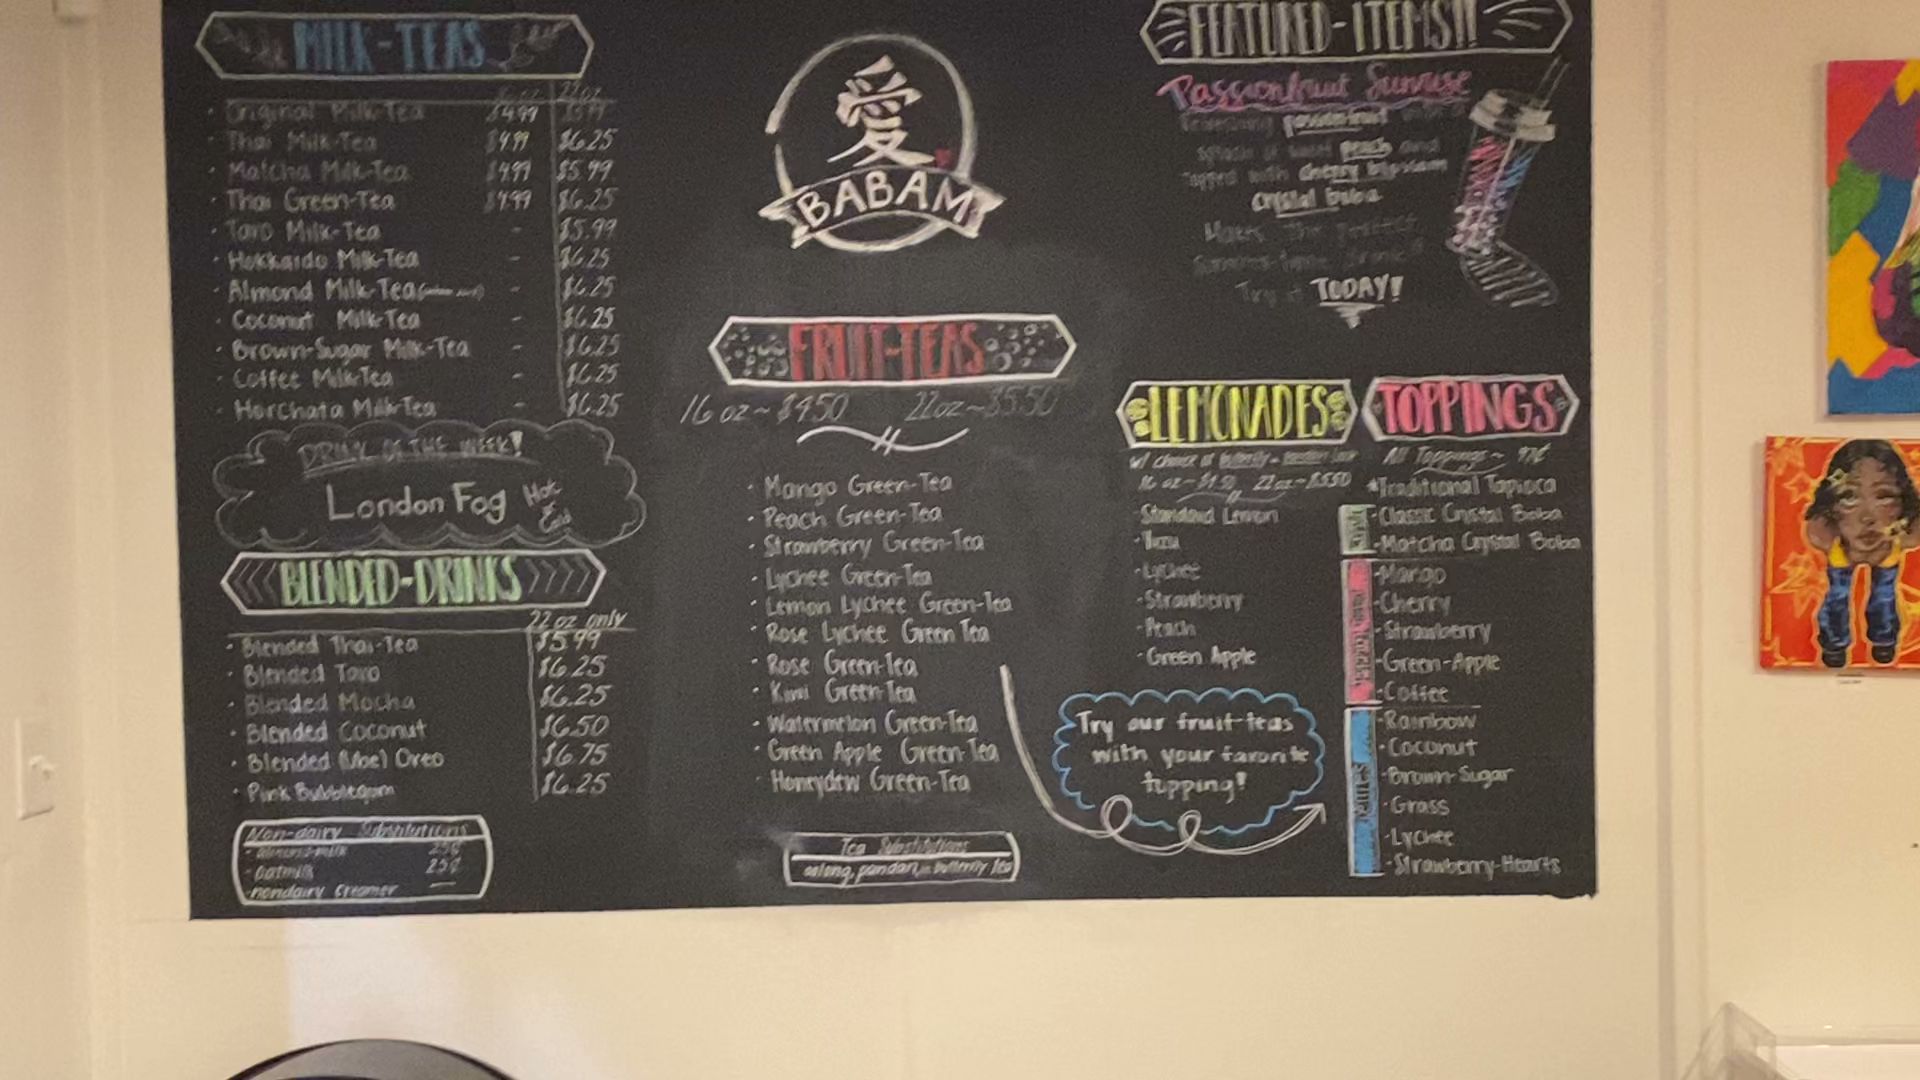 MILK-TEAS
22oz
· Original Milk-Tea $4.99 $5.99
· Thai Milk-Tea $4.99 $6.25
· Matcha Milk-Tea $4.99 $5.99
· Thai Green-Tea $4.99 $6.25
· Taro Milk-Tea - $5.99
· Hokkaido Milk-Tea - $6.25
· Almond Milk-Tea - $6.25
· Coconut Milk-Tea - $6.25
· Brown-Sugar Milk-Tea - $6.25
· Coffee Milk-Tea - $6.25
· Horchata Milk-Tea - $6.25
DRINK OF THE WEEK!
London Fog Hot & Cold
BLENDED-DRINKS
22 oz only
· Blended Thai-Tea $5.99
· Blended Taro $6.25
· Blended Mocha $6.25
· Blended Coconut $6.50
· Blended (Ube) Oreo $6.75
· Pink Bubblegum $6.25
Non-dairy Substitutions
- almond-milk 25¢
- oatmilk 25¢
-nondairy creamer —
愛
BABAM
FRUIT-TEAS
16 oz ~ $4.50 22oz ~ $5.50
· Mango Green-Tea
· Peach Green-Tea
· Strawberry Green-Tea
· Lychee Green-Tea
· Lemon Lychee Green-Tea
· Rose Lychee Green Tea
· Rose Green-Tea
· Kiwi Green-Tea
· Watermelon Green-Tea
· Green Apple Green-Tea
· Honeydew Green-Tea
Tea Substitutions
oolong, pandan, butterfly tea
FEATURED-ITEMS!!
Passionfruit Sunrise
passionfruit
peach and
Topped with cherry blossom
crystal boba
Makes the perfect
Try it TODAY!
LEMONADES
w/ choice of butterfly
16 oz ~ $4.50 22oz ~ $5.50
·Standard Lemon
·Yuzu
·Lychee
·Strawberry
·Peach
·Green Apple
Try our fruit-teas
with your favorite
topping!
TOPPINGS
All Toppings ~ 97¢
*Traditional Tapioca
·Classic Crystal Boba
·Matcha Crystal Boba
·Mango
·Cherry
·Strawberry
·Green-Apple
·Coffee
·Rainbow
·Coconut
·Brown-Sugar
·Grass
·Lychee
·Strawberry-Hearts